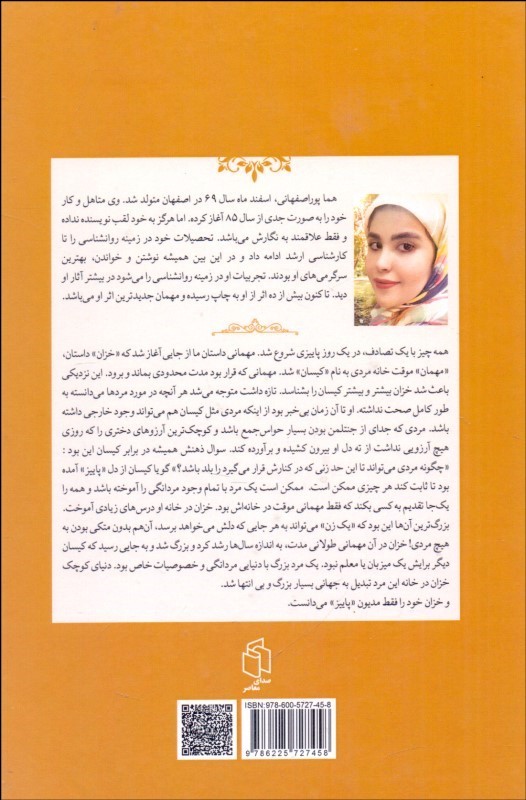 هما پوراصفهانی، اسفند ماه سال ۶۹ در اصفهان متولد شد. وی متاهل و کار
خود را به صورت جدی از سال ۸۵ آغاز کرده. اما هرگز به خود لقب نویسنده نداده
و فقط علاقمند به نگارش می‌باشد. تحصیلات خود در زمینه روانشناسی را تا
کارشناسی ارشد ادامه داد و در این بین همیشه نوشتن و خواندن، بهترین
سرگرمی‌های او بودند. تجربیات او در زمینه روانشناسی را می‌شود در بیشتر آثار او
دید. تا کنون بیش از ده اثر از او به چاپ رسیده و مهمان جدیدترین اثر او می‌باشد.
همه چیز با یک تصادف، در یک روز پاییزی شروع شد. مهمانی داستان ما از جایی آغاز شد که «خزان» داستان،
«مهمان» موقت خانه مردی به نام «کیسان» شد. مهمانی که قرار بود مدت محدودی بماند و برود. این نزدیکی
باعث شد خزان بیشتر و بیشتر کیسان را بشناسد. تازه داشت متوجه می‌شد هر آنچه در مورد مردها می‌دانسته به
طور کامل صحت نداشته. او تا آن زمان بی‌خبر بود از اینکه مردی مثل کیسان هم می‌تواند وجود خارجی داشته
باشد. مردی که جدای از جنتلمن بودن بسیار حواس‌جمع باشد و کوچک‌ترین آرزوهای دختری را که روزی
هیچ آرزویی نداشت از ته دل او بیرون کشیده و برآورده کند. سوال ذهنش همیشه در برابر کیسان این بود :
«چگونه مردی می‌تواند تا این حد زنی که در کنارش قرار می‌گیرد را بلد باشد؟» گویا کیسان از دل «پاییز» آمده
بود تا ثابت کند هر چیزی ممکن است. ممکن است یک مرد با تمام وجود مردانگی را آموخته باشد و همه را
یک‌جا تقدیم به کسی بکند که فقط مهمانی موقت در خانه‌اش بود. خزان در خانه او درس‌های زیادی آموخت.
بزرگ‌ترین آن‌ها این بود که «یک زن» می‌تواند به هر جایی که دلش می‌خواهد برسد، آن‌هم بدون متکی بودن به
هیچ مردی! خزان در آن مهمانی طولانی مدت، به اندازه سال‌ها رشد کرد و بزرگ شد و به جایی رسید که کیسان
دیگر برایش یک میزبان یا معلم نبود. یک مرد بزرگ با دنیایی مردانگی و خصوصیات خاص بود. دنیای کوچک
خزان در خانه این مرد تبدیل به جهانی بسیار بزرگ و بی انتها شد.
و خزان خود را فقط مدیون «پاییز» می‌دانست.
صدای
معاصر
ISBN: 978-600-5727-45-8
9 786225 727458